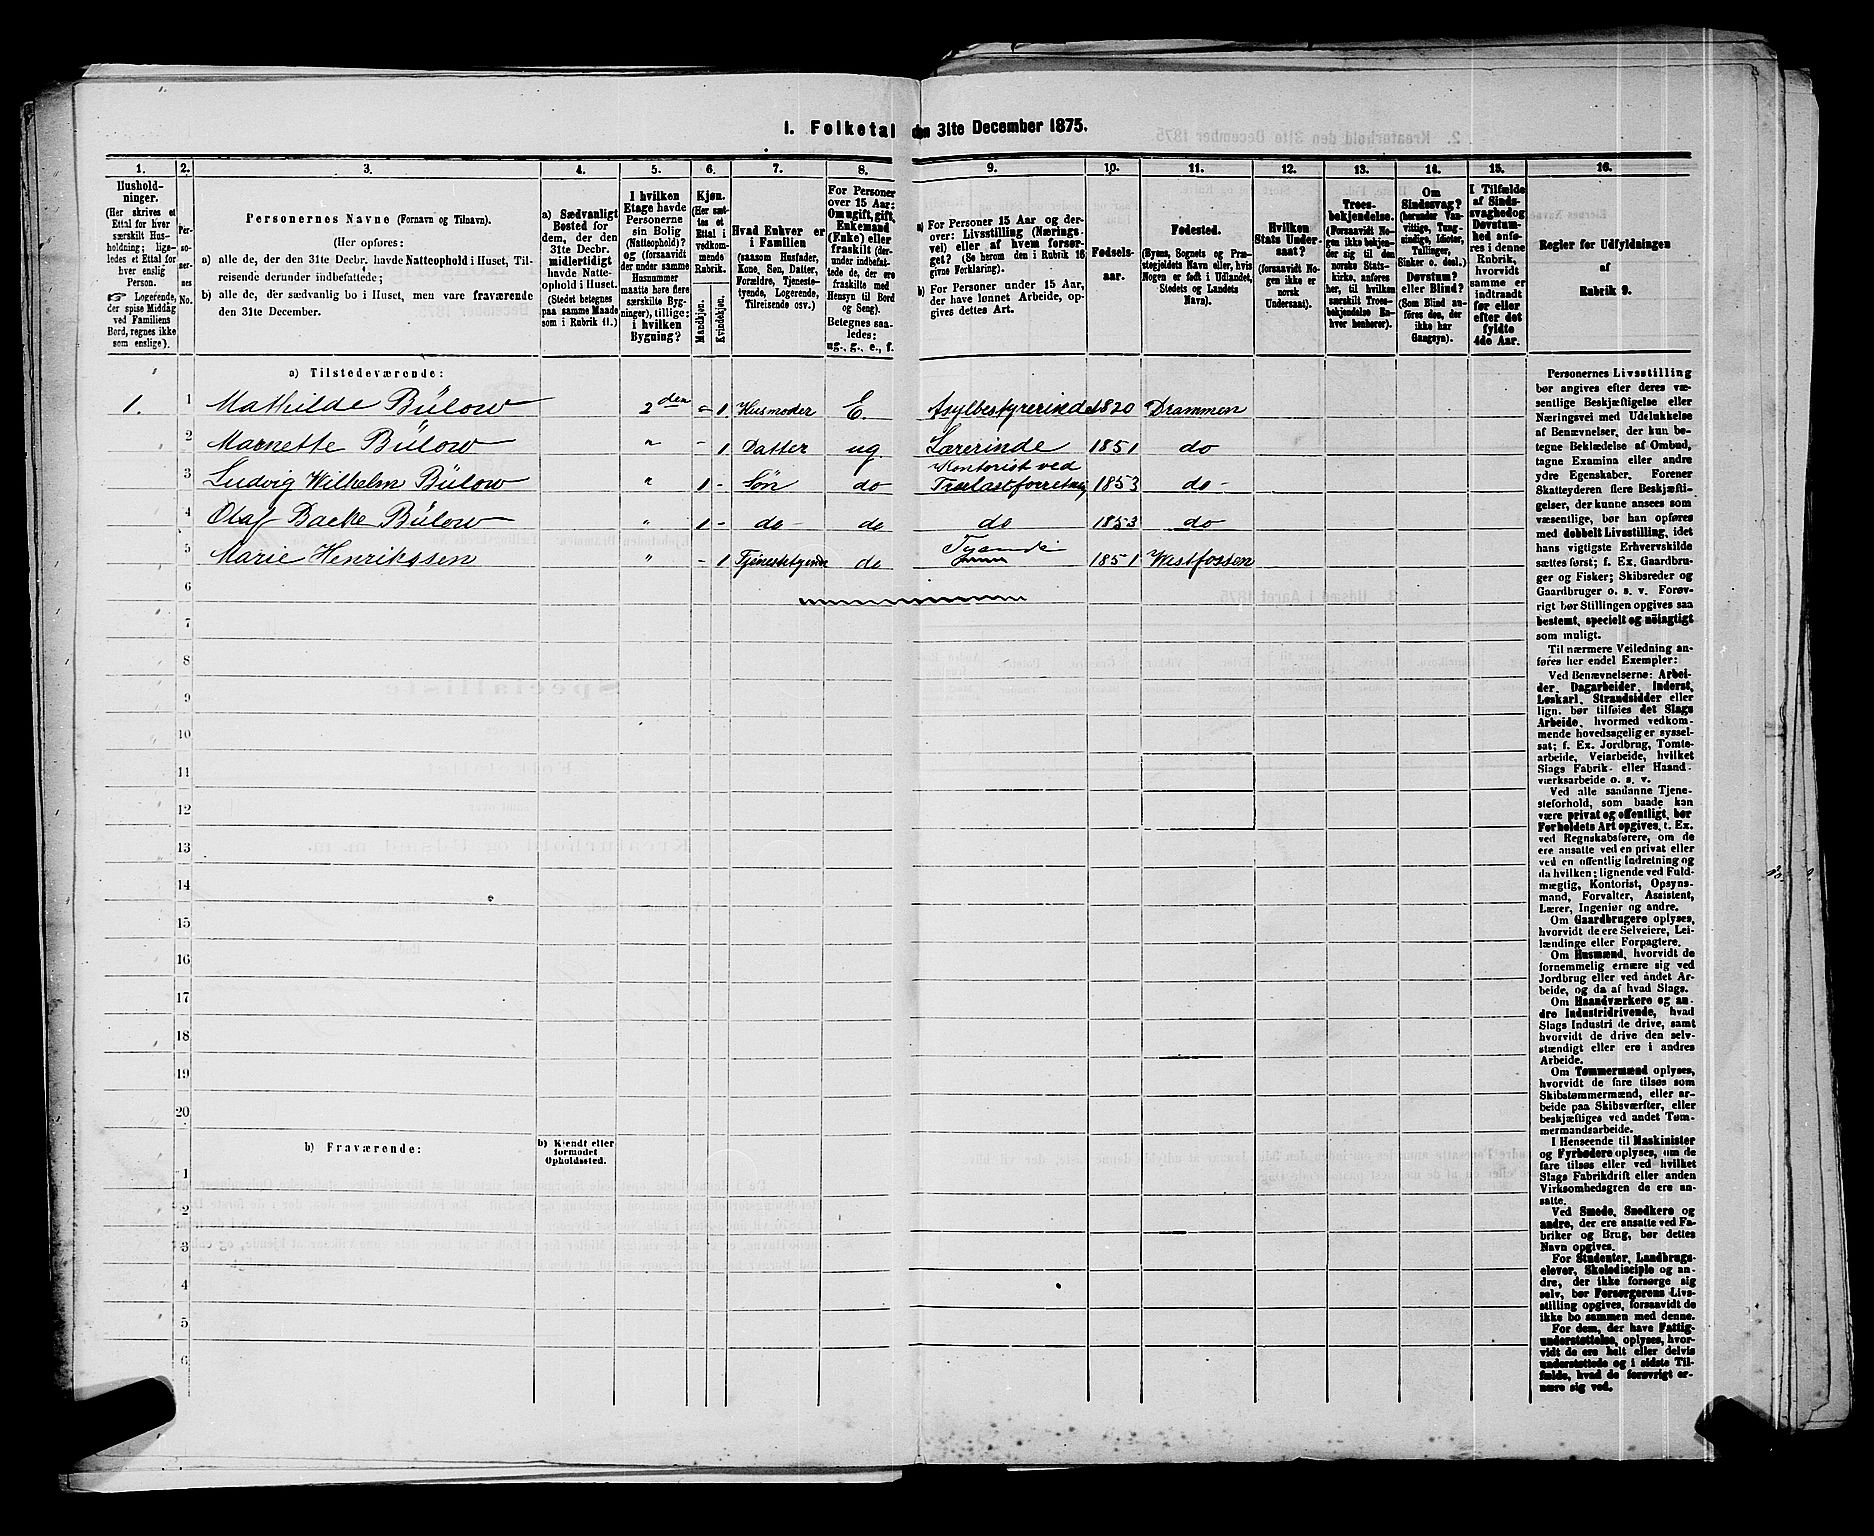 1. Folketal den 31te December 1875.
1. 2. 3. 4. 5. 6. 7. 8. 9. 10. 11. 12. 13. 14. 15. 16.
Hushold-
ninger.
(Her skrives et
Ettal for hver
særskilt Hus-
holdning; lige-
ledes et Ettal for
hver enslig
Person.
☞ Logerende,
der spise Middag
ved Familiens
Bord, regnes ikke
som enslige).
Per-
so-
ner-
nes
No.
Personernes Navne (Fornavn og Tilnavn).
(Her opføres:
a) alle de, der den 31te Decbr. havde Natteophold i Huset, Til-
reisende derunder indbefattede;
b) alle de, der sædvanlig bo i Huset, men vare fraværende
den 31te December.
a) Sædvanligt
Bosted for
dem, der den
31te Decbr.
midlertidigt
havde Natte-
ophold i Huset.
(Stedet betegnes
paa samme Maade
som i Rubrik 11.)
I hvilken
Etage havde
Personerne
sin Bolig
(Natteophold)?
og (forsaavidt
der under samme
Husnummer
maatte høre flere
særskilte Byg-
ninger), tillige:
i hvilken
Bygning?
Kjøn.
(Her sæt-
tes et
Ettal i
vedkom-
mende
Rubrik.
Mandkjøn.
Kvindekjøn.
Hvad Enhver er
i Familien
(saasom Husfader,
Kone, Søn, Datter,
Forældre, Tjeneste-
tyende, Logerende,
Tilreisende osv.)
For Personer
over 15 Aar:
Om ugift, gift,
Enkemand
(Enke) eller
fraskilt (der-
under indbefat-
tede de, der ere
fraskilte med
Hensyn til Bord
og Seng).
Betegnes saa-
ledes:
ug., g., e., f.
a) For Personer 15 Aar og der-
over: Livsstilling (Nærings-
vei) eller af hvem forsør-
get? (Se herom den i Rubrik 16
givne Forklaring).
b) For Personer under 15 Aar,
der have lønnet Arbeide, op-
gives dettes Art.
Fødsels-
aar.
Fødested.
(Byens, Sognets og Præ-
stegjeldets Navn eller, hvis
Nogen er født i Udlandet,
Stedets og Landets
Navn).
Hvilken
Stats Under-
saat?
(forsaavidt No-
gen ikke er
norsk
Undersaat).
Troes-
bekjendelse.
(Forsaavidt No-
gen ikke bekjen-
der sig til den
norske Stats-
kirke, anføres
her, til hvilken
særskilt Troes-
bekjendelse En-
hver henhører).
Om
Sindssvag?
(herunder Van-
vittige, Tung-
sindige, Idioter,
Tullinger,
Sinker o. desl.)
Døvstum?
eller Blind?
(Som Blind an-
føres den, der
ikke har
Gangsyn).
I Tilfælde
af Sinds-
svaghed og
Døvstum-
hed anfø-
res i denne
Rubrik,
hvorvidt
samme er
indtraadt
før eller
efter det
fyldte
4de Aar.
Regler for Udfyldningen
af
Rubrik 9.
a) Tilstedeværende:
1. 1 Mathilde Bülow 2den - 1. Husmoder E. Asylbestyrerinde 1820 Drammen
2 Marnette Bülow " - 1 Datter ug Lærerinde 1851 do
3 Ludvig Wilhelm Bülow " 1 - Søn do Kontorist ved Trælastforretning 1853 do -
4 Olaf Backe Bülow " 1 - do - do do 1853 do
5 Marie Henrikssen " - 1 Tjenestetyende do Tyende 1851 Westfossen
6
7
8
9
10
11
12
13
14
15
16
17
18
19
20
b) Fraværende:
b) Kjendt eller
formodet
Opholdssted.
1
2
3
4
5
6
Personernes Livsstilling
bør angives efter deres væ-
sentlige Beskjæftigelse eller
Næringsvei med Udelukkelse
af Benævnelser, der kun be-
tegne Beklædelse af Ombud,
tagne Examina eller andre
ydre Egenskaber. Forener
Skatteyderen flere Beskjæfti-
gelser, der kunne ansees som
væsentlige, bør han opføres
med dobbelt Livsstilling, idet
hans vigtigste Erhvervskilde
sættes først; f. Ex. Gaardbru-
ger og Fisker; Skibsreder og
Gaardbruger o. s. v. Forøv-
rigt bør Stillingen opgives saa
bestemt, specielt og nöiagtigt
som muligt.
Til nærmere Veiledning an-
føres her endel Exempler:
Ved Benævnelserne: Arbei-
der, Dagarbeider, Inderst,
Løskarl, Strandsidder eller
lign. bør tilføies det Slags
Arbeide, hvormed vedkom-
mende hovedsagelig er syssel-
sat; f. Ex. Jordbrug, Tomte-
arbeide, Veiarbeide, hvilket
Slags Fabrik- eller Haand-
værksarbeide o. s. v.
Ved alle saadanne Tjene-
steforhold, som baade kan
være privat og offentligt, bør
Forholdets Art opgives, t. Ex.
ved Regnskabsførere, om de
ere ansatte ved en privat eller
ved en offentlig Indretning og
da hvilken; lignende ved Fuld-
mægtig, Kontorist, Opsyns-
mand, Forvalter, Assistent,
Lærer, Ingeniør og andre.
Om Gaardbrugere oplyses,
hvorvidt de ere Selveiere, Lei-
lændinge eller Forpagtere.
Om Husmænd, hvorvidt de
fornemmelig ernære sig ved
Jordbrug eller ved åndet Ar-
beide, og da af hvad Slags.
Om Haandværkere og an-
dre Industridrivende, hvad
Slags Industri de drive, samt
hvorvidt de drive den selv-
stændigt eller ere i andres
Arbeide.
Om Tømmermænd oplyses,
hvorvidt de fare tilsøs som
Skibstømmermænd, eller ar-
beide paa Skibsværfter, eller
beskjæftiges ved andet Tøm-
mermandsarbeide.
I Henseende til Maskinister
og Fyrbødere oplyses, om de
fare tilsøs eller ved hvilket
Slags Fabrikdrift eller anden
Virksomhedsgren de ere an-
satte.
Ved Smede, Snedkere og
andre, der ere ansatte ved Fa-
briker og Brug, bør dettes
Navn opgives.
For Studenter, Landbrugs-
elever, Skoledisciple og an-
dre, der ikke forsørge sig
selv, bør Forsørgerens Livs-
stilling opgives, forsaavidt de
ikke bo sammen med denne.
For dem, der have Fattig-
understøttelse, oplyses, hvor-
vidt de ere helt eller delvis
understøttede og i sidste Til-
fælde, hvad de forøvrigt er-
nære sig ved.